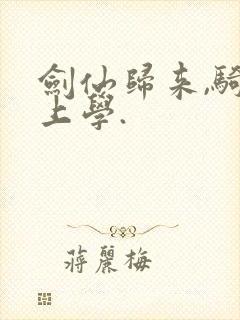 劍仙歸來,騎
上學.
蔣麗梅